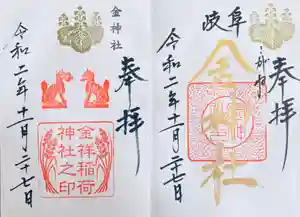 金神社
奉拝
金祥稲荷
神社之印
令和二年十一月二十七日
岐阜
奉拝
金神社
令和二年十一月二十七日